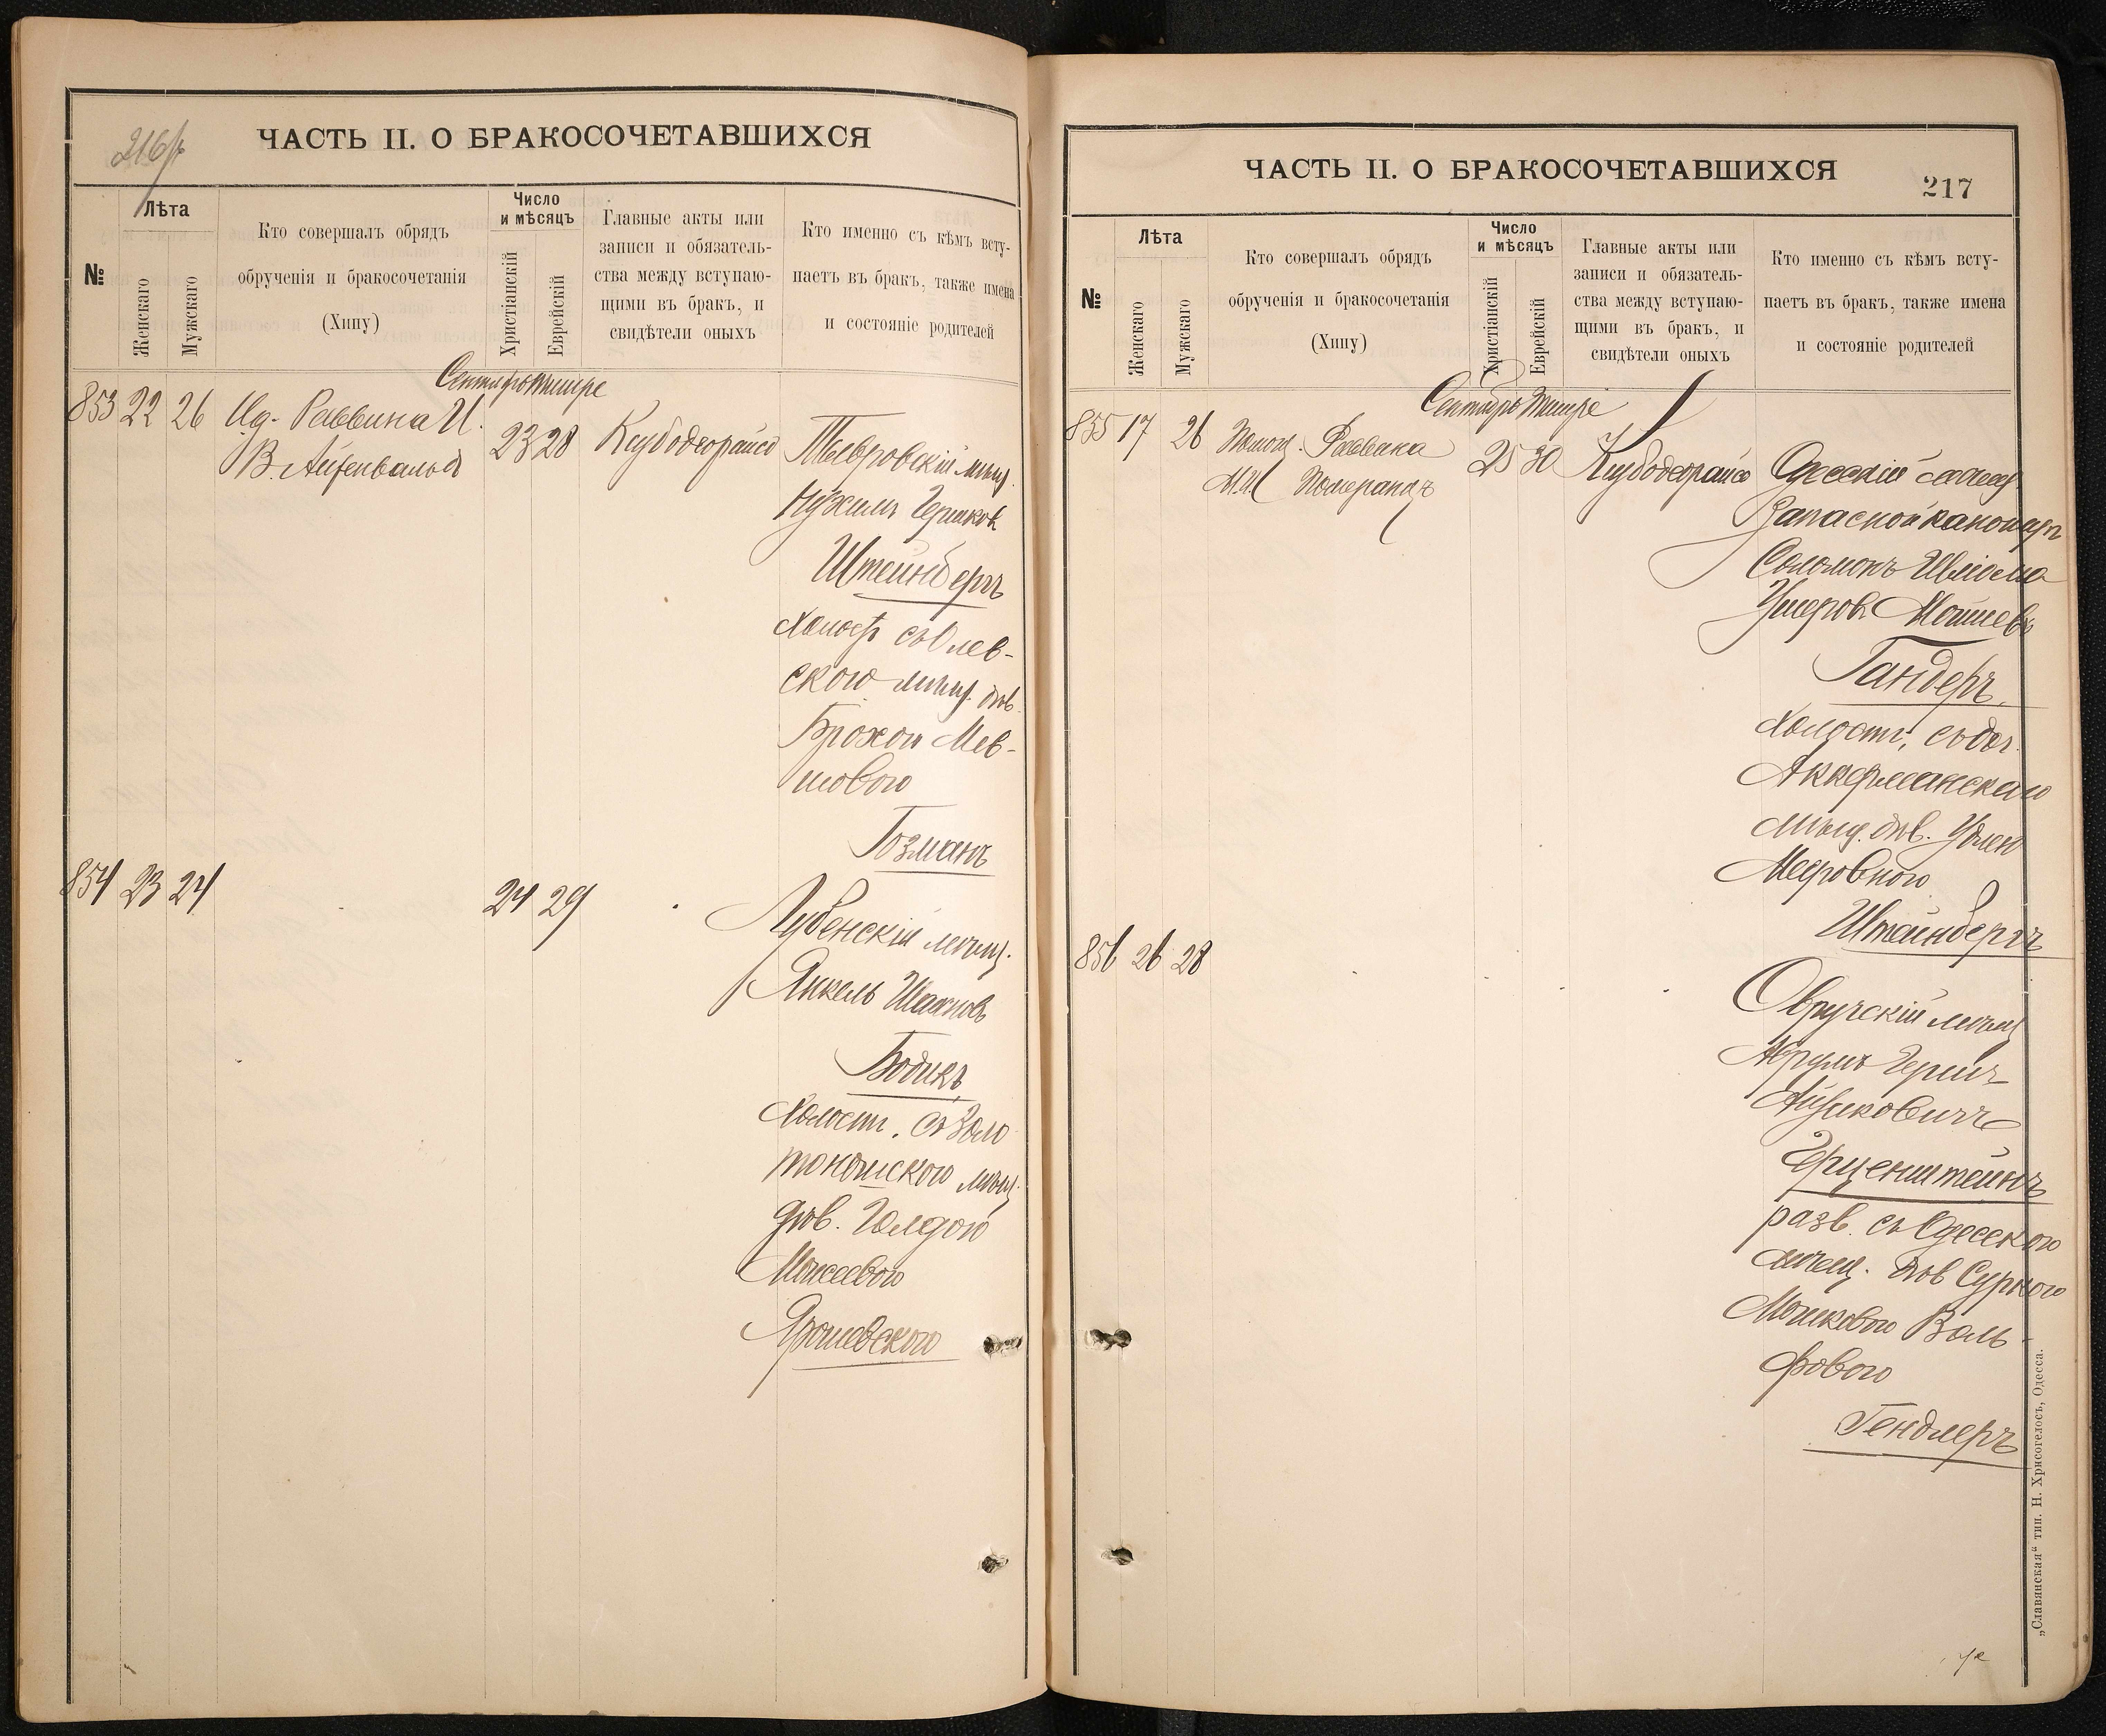 216/б
ЧАСТЬ II. О БРАКОСОЧЕТАВШИХСЯ
№
Лѣта
Женскаго
Мужскаго
Кто совершалъ обрядъ
обрученія и бракосочетанія
(Хипу)
Число
и мѣсяцъ
Христіанскій
Еврейскій
Главные акты или
записи и обязатель-
ства между вступаю-
щими въ бракъ, и
свидѣтели оныхъ
Кто именно съ кѣмъ всту-
паетъ въ бракъ, также имена
и состояніе родителей
Сентябрь Тишре
853 22 26 Раввина И. 23 28
В. Айзенвальдъ
мѣщ.
Нухимъ Гершковъ
Штейнбергъ
холост съ Олев-
скою мѣщ. дѣв.
Брохою
Гозманъ
854 23 24 24 29 Лубенскій мѣщ.
Янкель
Бодикъ
Холост. съ Золо
тоношскою мѣщ.
дѣв. Голдою
Мошковою
Ярошевскою
ЧАСТЬ II. О БРАКОСОЧЕТАВШИХСЯ
217
№
Лѣта
Женскаго
Мужскаго
Кто совершалъ обрядъ
обрученія и бракосочетанія
(Хипу)
Число
и мѣсяцъ
Христіанскій
Еврейскій
Главные акты или
записи и обязатель-
ства между вступаю-
щими въ бракъ, и
свидѣтели оныхъ
Кто именно съ кѣмъ всту-
паетъ въ бракъ, также имена
и состояніе родителей
Сентябрь Тишре
855 17 26 Помощ. Раввина 25 30 Одесскій мѣщ.
М.И. Померанцъ
Запасной канониръ
Соломонъ
Мошковъ
Гандеръ
Холост, съ доч.
Аккерманскаго
мѣщ. дѣв. Удлею
Мееровною
Штейнбергъ
856 26 28
Овручскій мѣщ
Абрумъ Герш-
Айзиковичъ
Герценштейнъ
разв. съ Одесскою
мѣщ. дѣв Суркою
Мошковою Воль-
фовою
Гендлеръ
„Славянская“ тип. Н. Хрисогелосъ, Одесса.